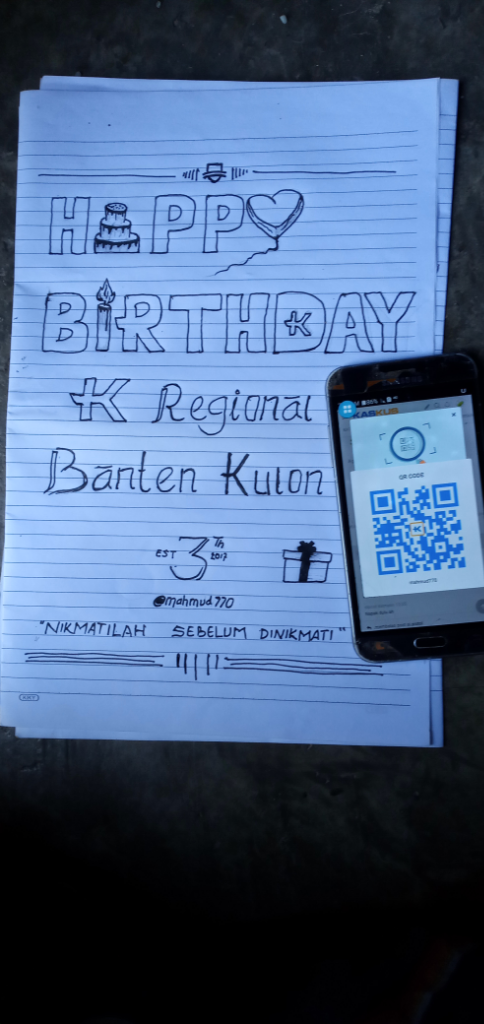 HAPPY
BiRTHDAY
K Regional
Banten Kulon
EST 3Th 2017
@mahmud770
"NIKMATILAH SEBELUM DINIKMATI"
KASKUS
QR CODE
mahmud770